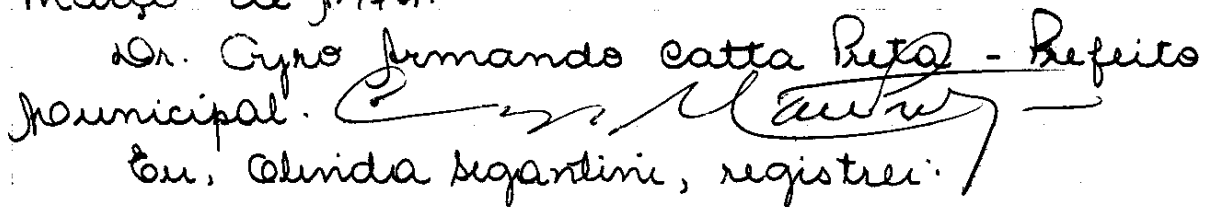 março de
Dr. Cyro Armando Catta Preta - Prefeito
Municipal.
Eu, Olinda Segantini, registrei.